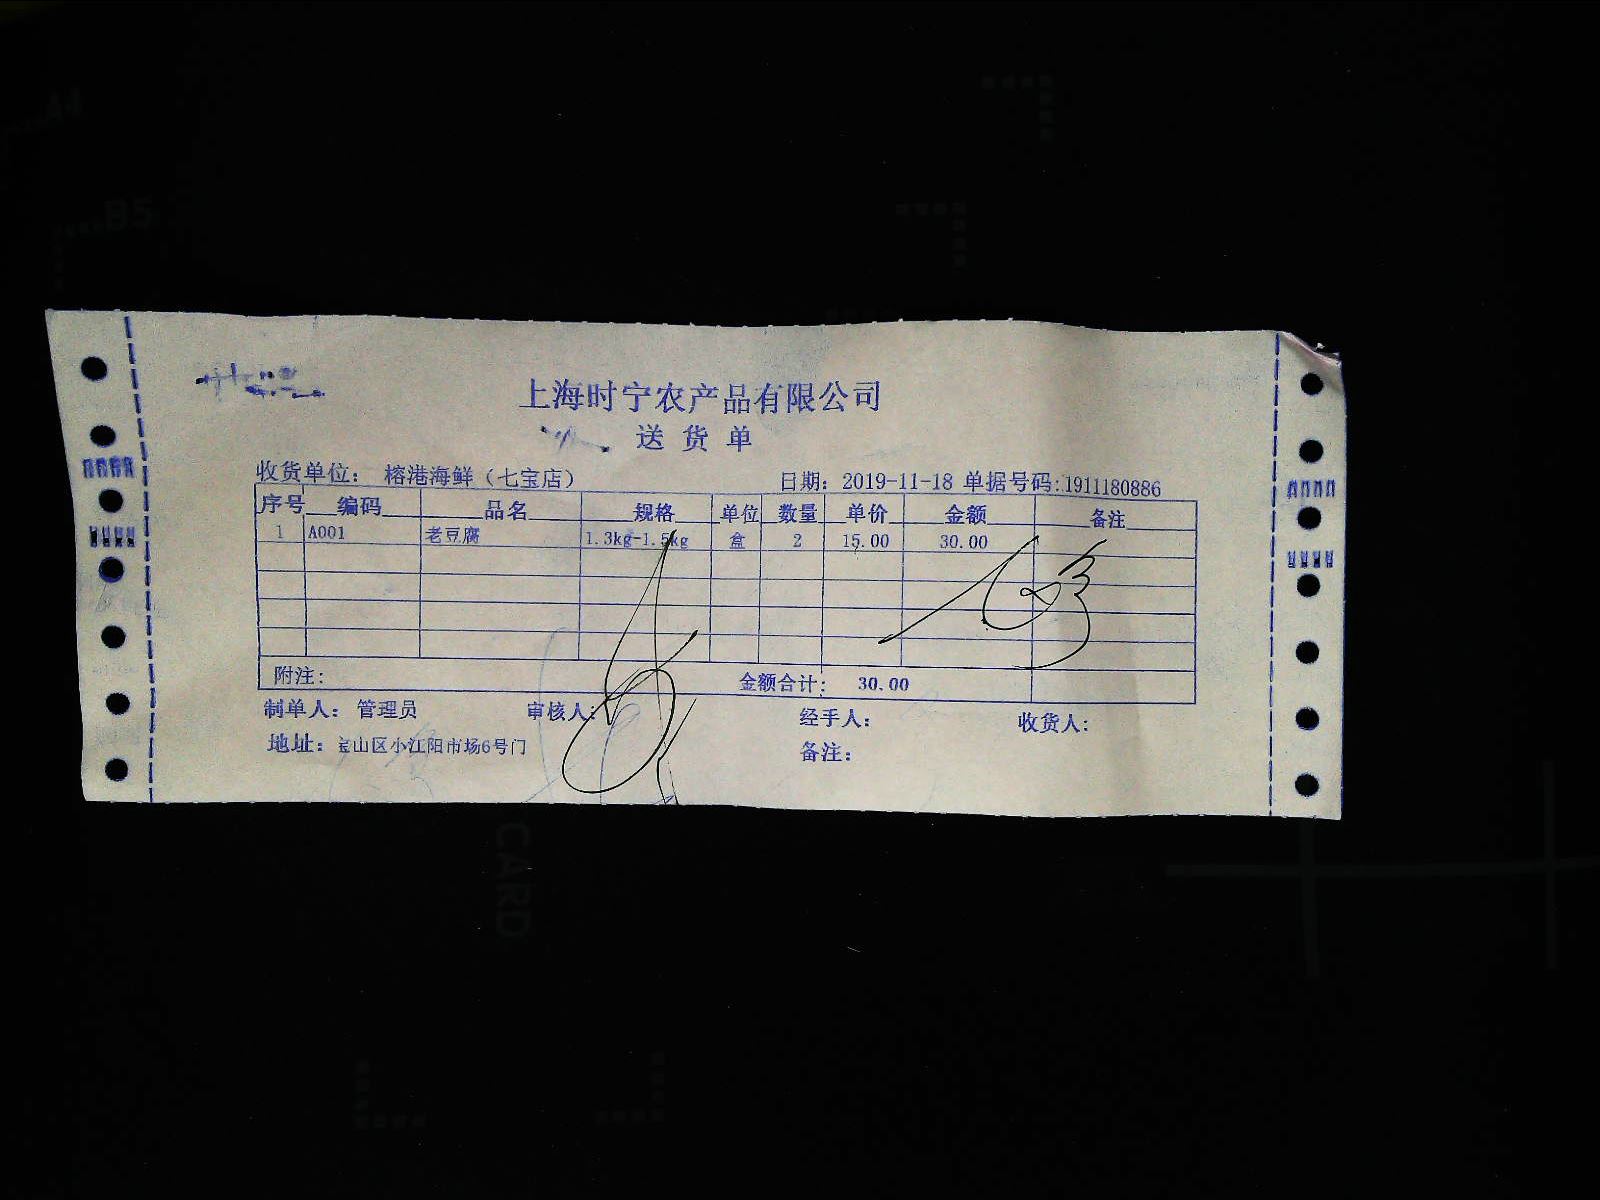 上海时宁农产品有限公司
送货单
收货单位： 榕港海鲜（七宝店） 日期：2019-11-18 单据号码:1911180886
序号 编码 品名 规格 单位 数量 单价 金额 备注
1 A001 老豆腐 1.3kg-1.5kg 盒 2 15.00 30.00
附注： 金额合计： 30.00
制单人： 管理员 审核人： 经手人： 收货人：
地址：宝山区小江阳市场6号门 备注：
A4
B5
CARD